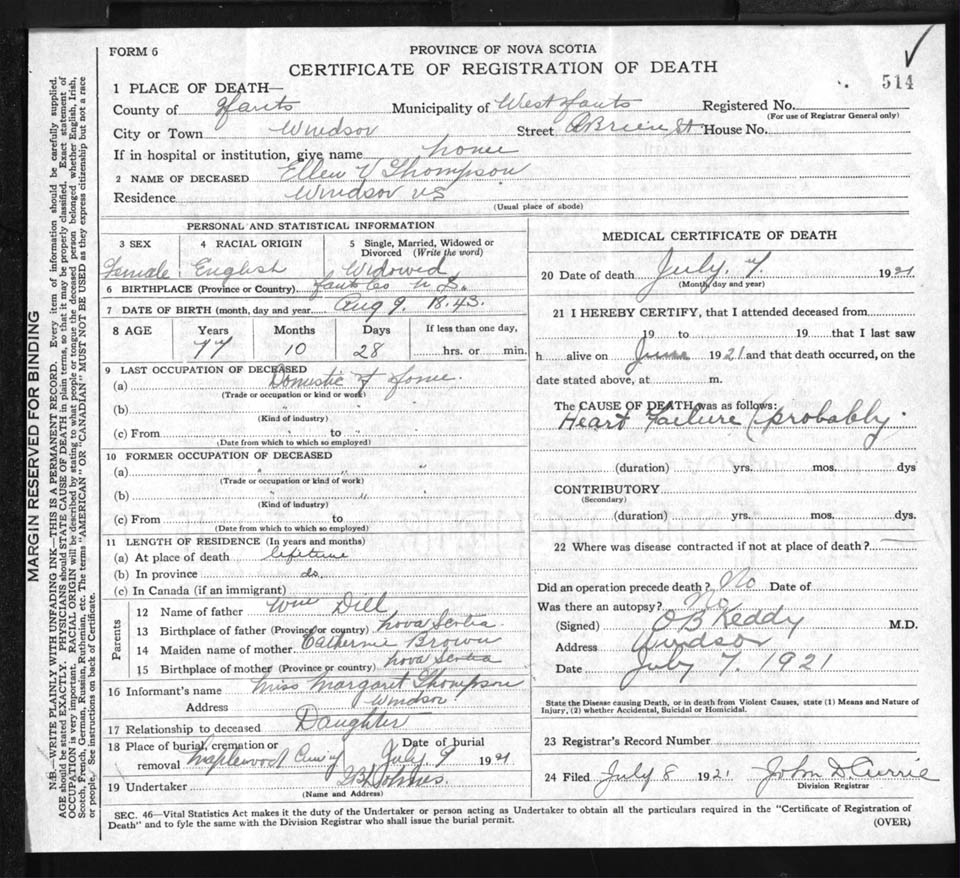 FORM 6
PROVINCE OF NOVA SCOTIA
CERTIFICATE OF REGISTRATION OF DEATH
514
1 PLACE OF DEATH—
County of Hants Municipality of West Hants Registered No.
(For use of Registrar General only)
City or Town Windsor Street O'Brien St. House No.
If in hospital or institution, give name home
2 NAME OF DECEASED Ellen Y Thompson
Residence Windsor NS
(Usual place of abode)
PERSONAL AND STATISTICAL INFORMATION
3 SEX 4 RACIAL ORIGIN 5 Single, Married, Widowed or Divorced (Write the word)
Female English Widowed
6 BIRTHPLACE (Province or Country) Hants Co N.S.
7 DATE OF BIRTH (month, day and year) Aug 9. 1843.
8 AGE Years Months Days If less than one day,
77 10 28 hrs. or min.
9 LAST OCCUPATION OF DECEASED
(a) Domestic at home.
(Trade or occupation or kind or work)
(b) "
(Kind of industry)
(c) From " to "
(Date from which to which so employed)
10 FORMER OCCUPATION OF DECEASED
(a) " "
(Trade or occupation or kind of work)
(b) " "
(Kind of industry)
(c) From to
(Date from which to which so employed)
11 LENGTH OF RESIDENCE (In years and months)
(a) At place of death lifetime
(b) In province do.
(c) In Canada (if an immigrant)
Parents
12 Name of father Wm Dill
13 Birthplace of father (Province or country) Nova Scotia
14 Maiden name of mother Catherine Brown
15 Birthplace of mother (Province or country) Nova Scotia
16 Informant's name Miss Margaret Thompson
Address Windsor
17 Relationship to deceased Daughter
18 Place of burial, cremation or removal Maplewood Date of burial July 9 1921
19 Undertaker
(Name and Address)
MEDICAL CERTIFICATE OF DEATH
20 Date of death July. 7. 1921.
(Month, day and year)
21 I HEREBY CERTIFY, that I attended deceased from
19 to 19 that I last saw
h alive on June 1921 and that death occurred, on the
date stated above, at m.
The CAUSE OF DEATH was as follows:
Heart Failure (probably
(duration) yrs. mos. dys
CONTRIBUTORY
(Secondary)
(duration) yrs. mos. dys.
22 Where was disease contracted if not at place of death?
Did an operation precede death? No Date of
Was there an autopsy? No
(Signed) O B Keddy M.D.
Address Windsor
Date July 7. 1921
State the Disease causing Death, or in death from Violent Causes, state (1) Means and Nature of
Injury, (2) whether Accidental, Suicidal or Homicidal.
23 Registrar's Record Number
24 Filed July 8 1921 John D Currie
Division Registrar
SEC. 46—Vital Statistics Act makes it the duty of the Undertaker or person acting as Undertaker to obtain all the particulars required in the "Certificate of Registration of
Death" and to fyle the same with the Division Registrar who shall issue the burial permit.
(OVER)
MARGIN RESERVED FOR BINDING
N.B.—WRITE PLAINLY WITH UNFADING INK—THIS IS A PERMANENT RECORD. Every item of information should be carefully supplied.
AGE should be stated EXACTLY. PHYSICIANS should STATE CAUSE OF DEATH in plain terms, so that it may be properly classified. Exact statement of
OCCUPATION is very important. RACIAL ORIGIN will be described by stating to what people or tongue the deceased person belonged whether English, Irish,
Scotch, French, German, Russian, Ruthenian, etc. The terms "AMERICAN" OR "CANADIAN" MUST NOT BE USED as they express citizenship but not a race
or people. See instructions on back of Certificate.